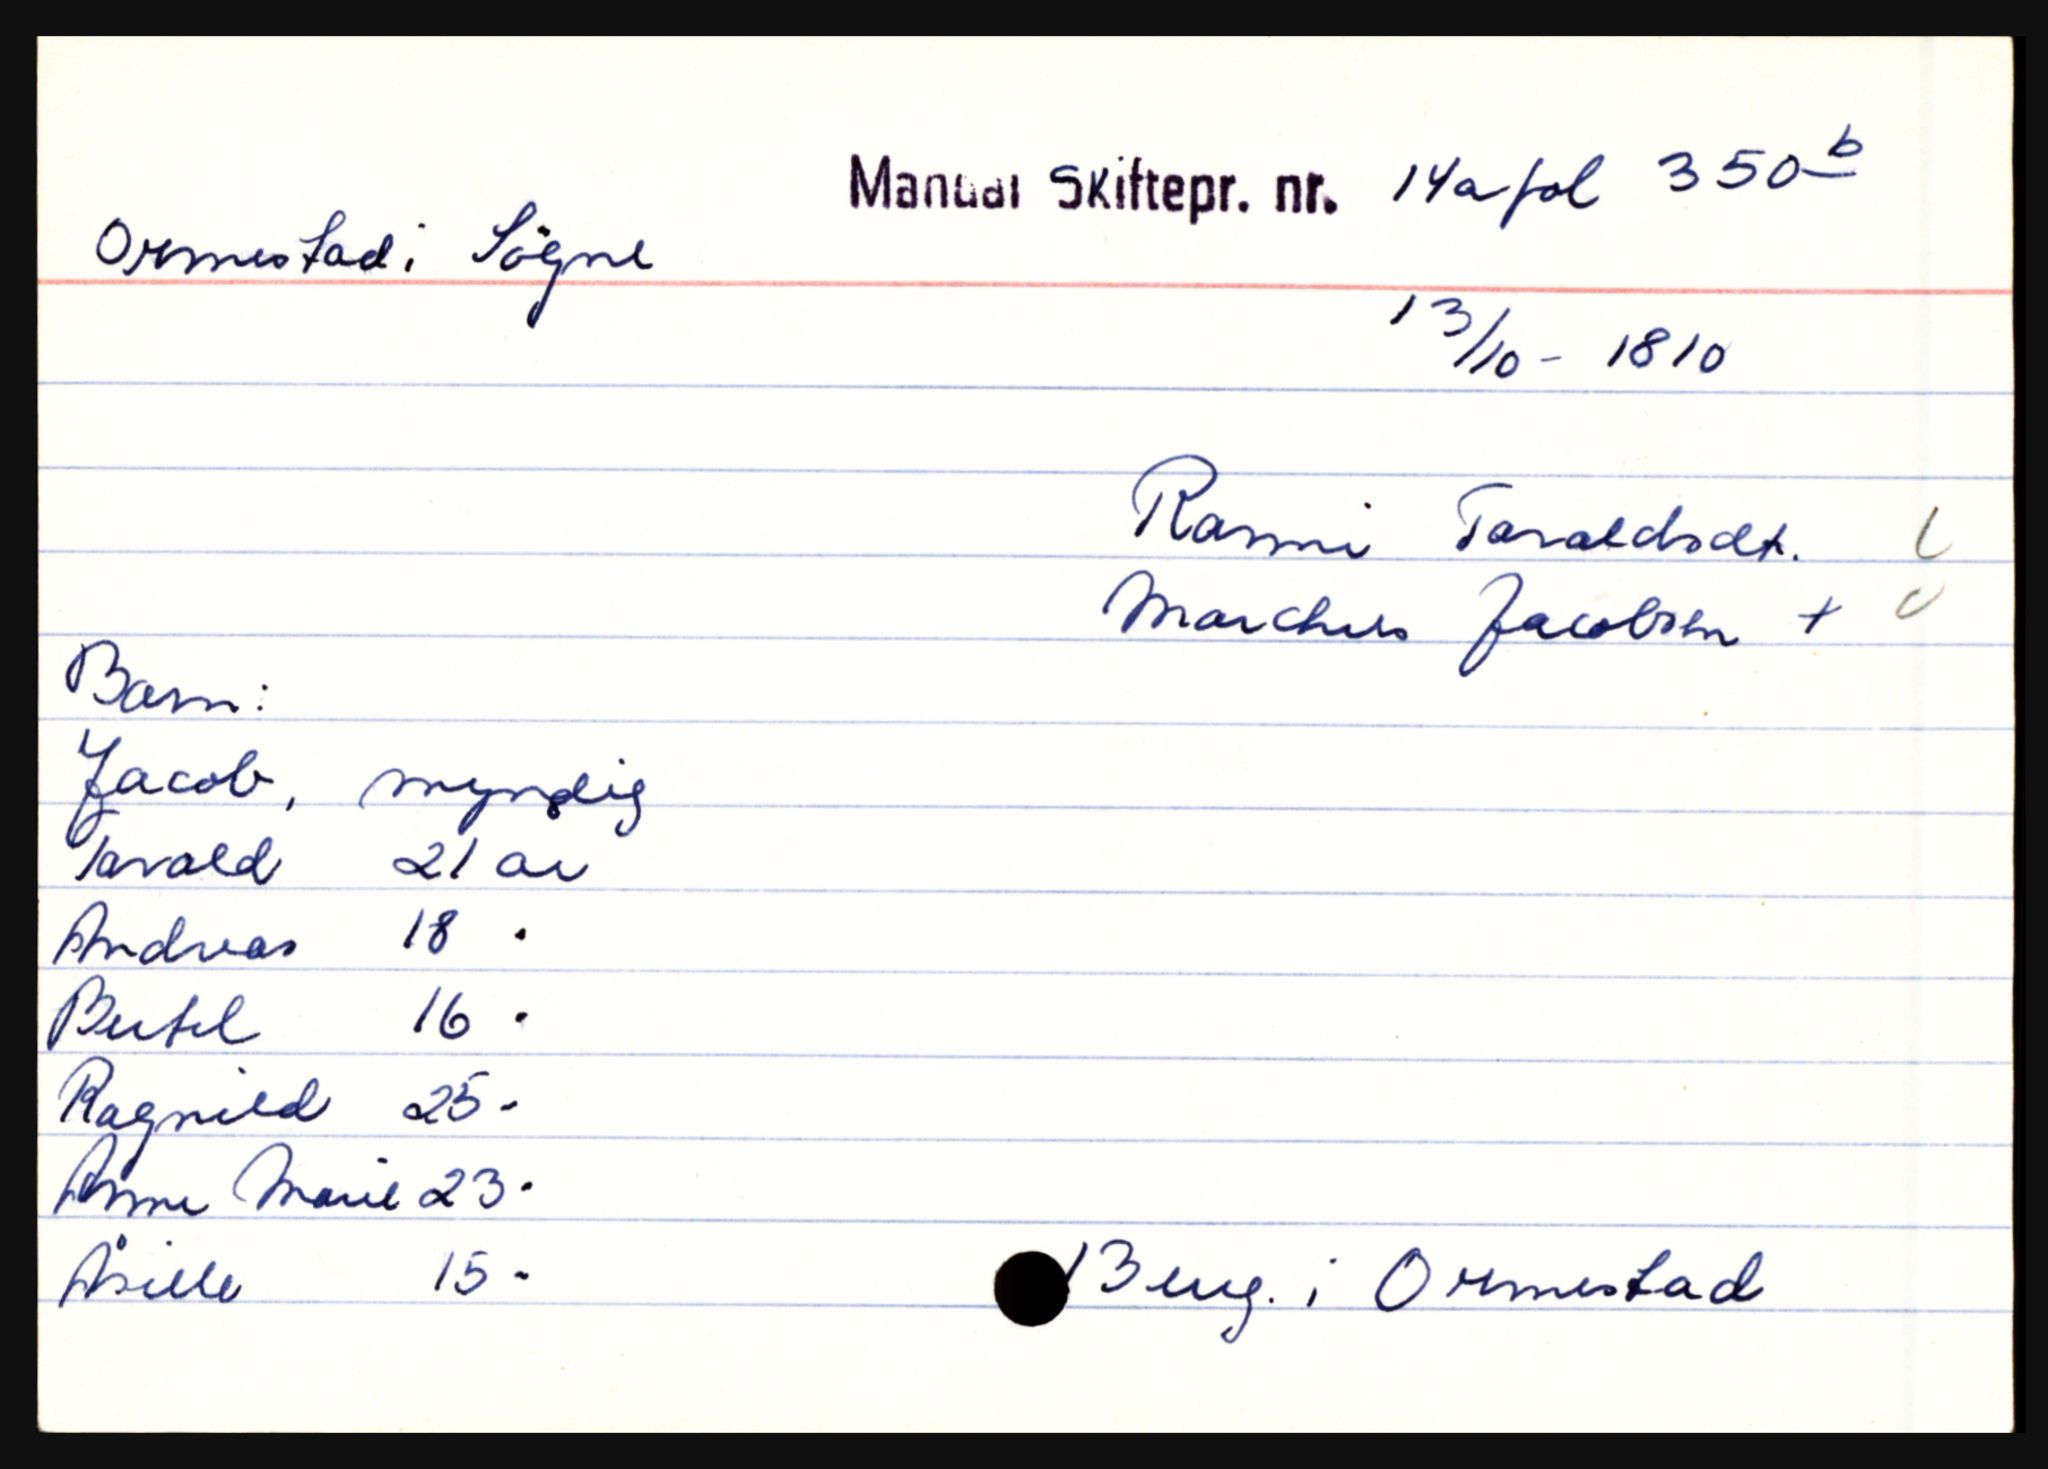 Manual Skiftepr. nr. 14a fol 350b
Ormestad i Søgne
13/10 - 1810
Ranni Taraldsdt.
Marchus Jacobsen +
Barn:
Jacob, myndig
Tarald 21 år
Andreas 18 "
Bertel 16 "
Ragnild 25 "
Anne Marie 23 "
Åsille 15 "
13 eng. i Ormestad